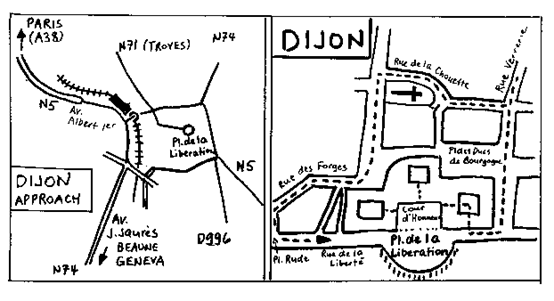 PARIS
(A38)
N71 (TROYES)
N74
N5
Av.
Albert 1er
Pl. de la
Liberation
N5
DIJON
APPROACH
Av.
J. Jaurès
BEAUNE
GENEVA
N74
D996
DIJON
Rue de la Chouette
Rue Verrerie
Pl des Ducs
de Bourgogne
Rue des Forges
Cour
d'Honneur
Pl. de la
Liberation
Pl. Rude
Rue de la
Liberté